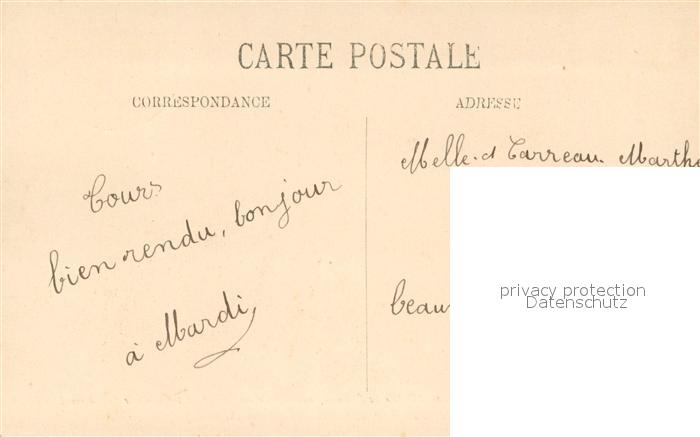 CARTE POSTALE
CORRESPONDANCE
ADRESSE
Cours
bien rendu, bonjour
à Mardi,
Melle. Carreau. Marthe
beau
privacy protection
Datenschutz